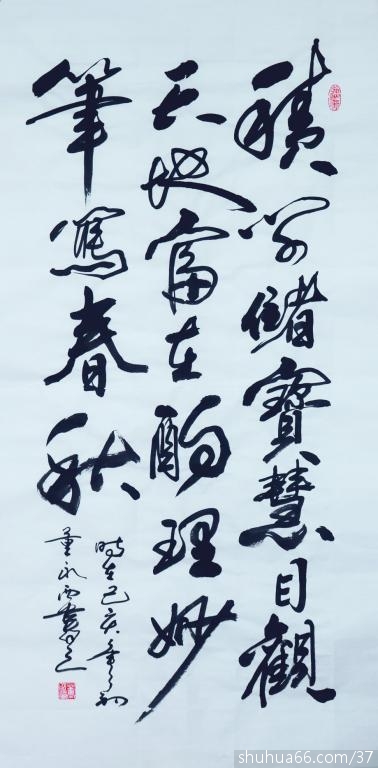 積學儲寶慧目觀
天地富在酌理妙
筆寫春秋
時在己亥年初
董永西書
shuhua66.com/37